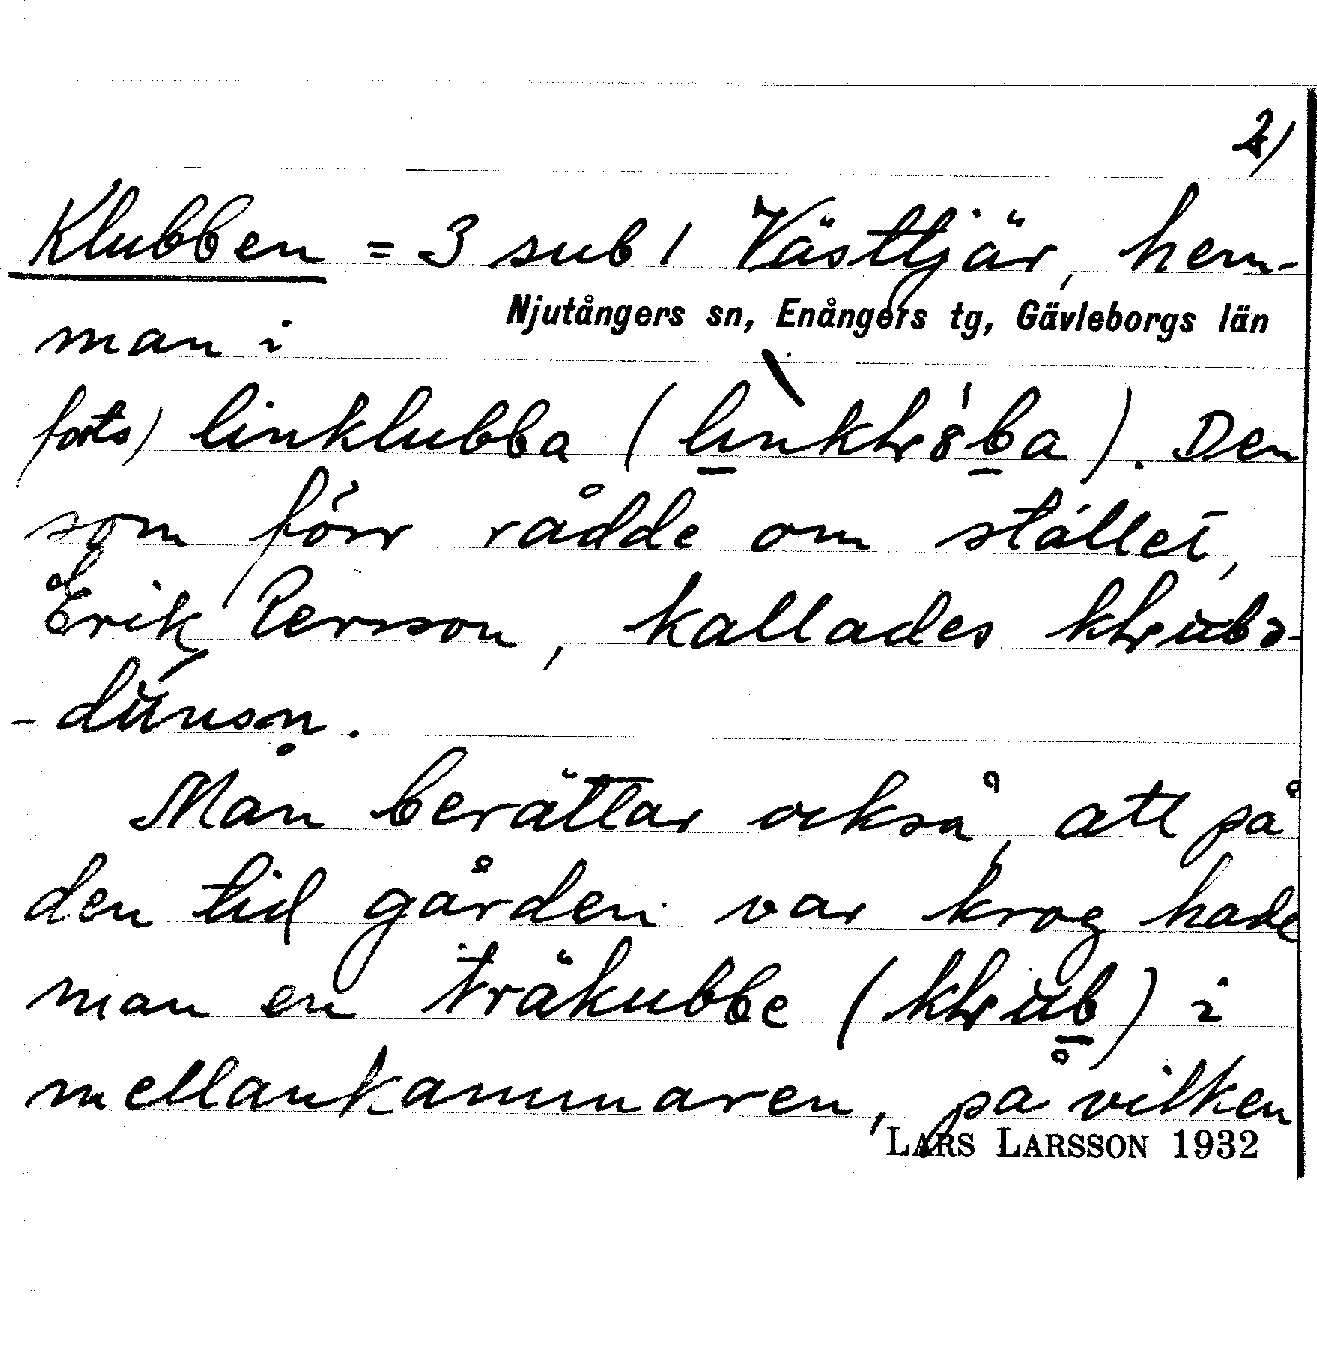 2)
Klubben = 3 sub 1 Västtjär, hem-
Njutångers sn, Enångers tg, Gävleborgs län
man i
forts) linklubba ( ). Den
som förr rådde om stället,
Erik Persson, kallades

Man berättar också, att på
den tid gården var krog hade
man en träkubbe ( ) i
mellankammaren, på vilken
LARS LARSSON 1932